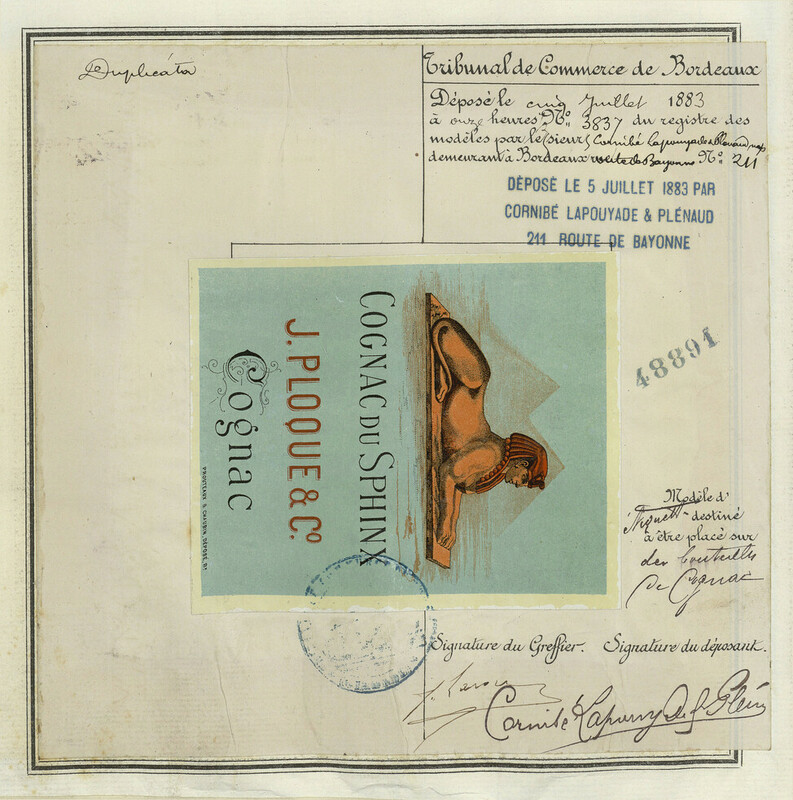 Duplicata
Tribunal de Commerce de Bordeaux
Déposé le cinq Juillet 1883
à onze heures N° 3837 du registre des
modèles par le sieurs Cornibé Lapouyade & Plénaud
demeurant à Bordeaux route de Bayonne N° 211
DÉPOSÉ LE 5 JUILLET 1883 PAR
CORNIBÉ LAPOUYADE & PLÉNAUD
211 ROUTE DE BAYONNE
48891
COGNAC DU SPHINX
J. PLOQUE & Cº.
Cognac
Modèle d'
étiquette destiné
à être placé sur
des bouteilles
de Cognac
Signature du Greffier. Signature du déposant.
Cornibé Lapouyade & Plén